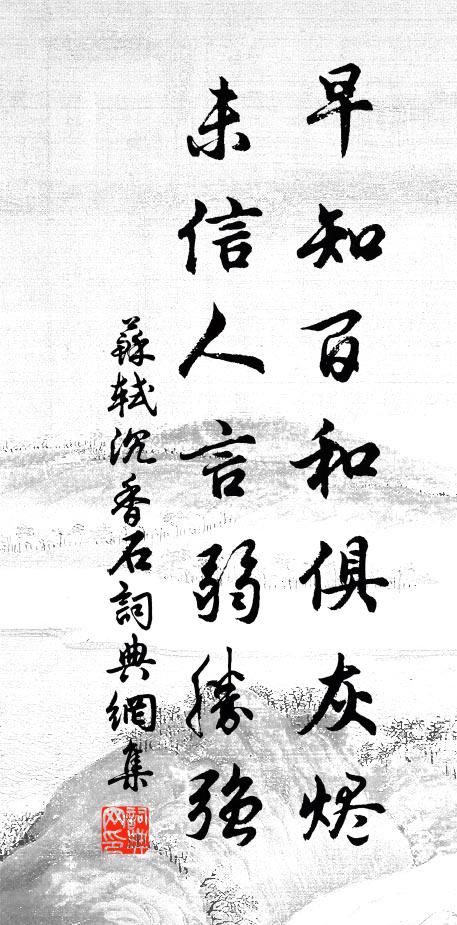 早知百和俱灰烬
未信人言弱勝强
蘇軾沉香石詞典網集